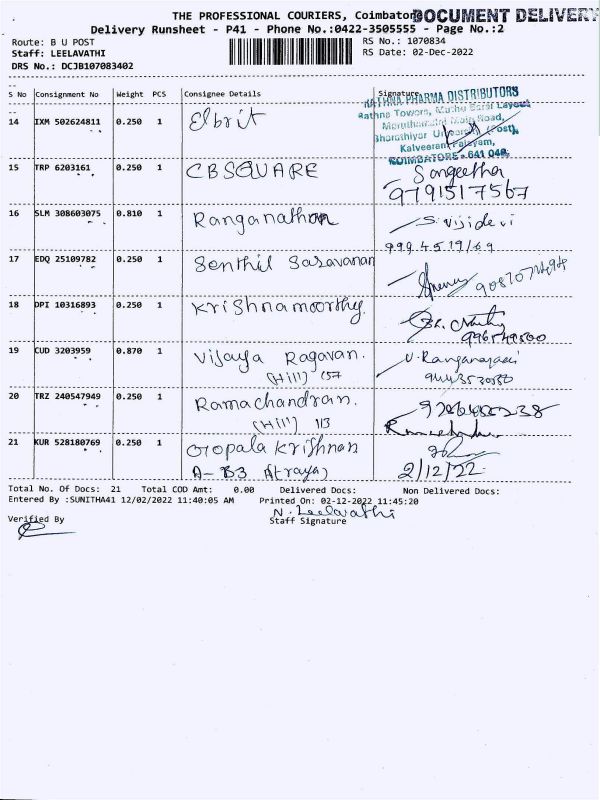 THE PROFESSIONAL COURIERS, Coimbato DOCUMENT DELIVERY
Delivery Runsheet - P41 - Phone No.:0422-3505555 - Page No.:2
Route: B U POST RS No.: 1070834
Staff: LEELAVATHI RS Date: 02-Dec-2022
DRS No.: DCJB107083402
S No Consignment No Weight PCS Consignee Details Signature
RATHNA PHARMA DISTRIBUTORS
Rathna Towers, Layout
Main Road,
Bharathiyar (Post),
Kalveeran Palayam,
COIMBATORE - 641 046.
14 IXM 502624811 0.250 1 Elbrit
15 TRP 6203161 0.250 1 CBSQUARE Sangeetha
9791517567
16 SLM 308603075 0.810 1 Ranganathan S. vijidevi
17 EDQ 25109782 0.250 1 Senthil Saravanan
18 DPI 10316893 0.250 1 Krishnamoorthy
19 CUD 3203959 0.870 1 Vijaya Ragavan. V. Ranganayaki
(Hill) 157
20 TRZ 240547949 0.250 1 Ramachandran.
(Hill) 113
21 KUR 528180769 0.250 1 Gopala Krishnan
A- B3 Atraya) 2/12/22
Total No. Of Docs: 21 Total COD Amt: 0.00 Delivered Docs: Non Delivered Docs:
Entered By :SUNITHA41 12/02/2022 11:40:05 AM Printed On: 02-12-2022 11:45:20
N. Leelavathi
Verified By Staff Signature